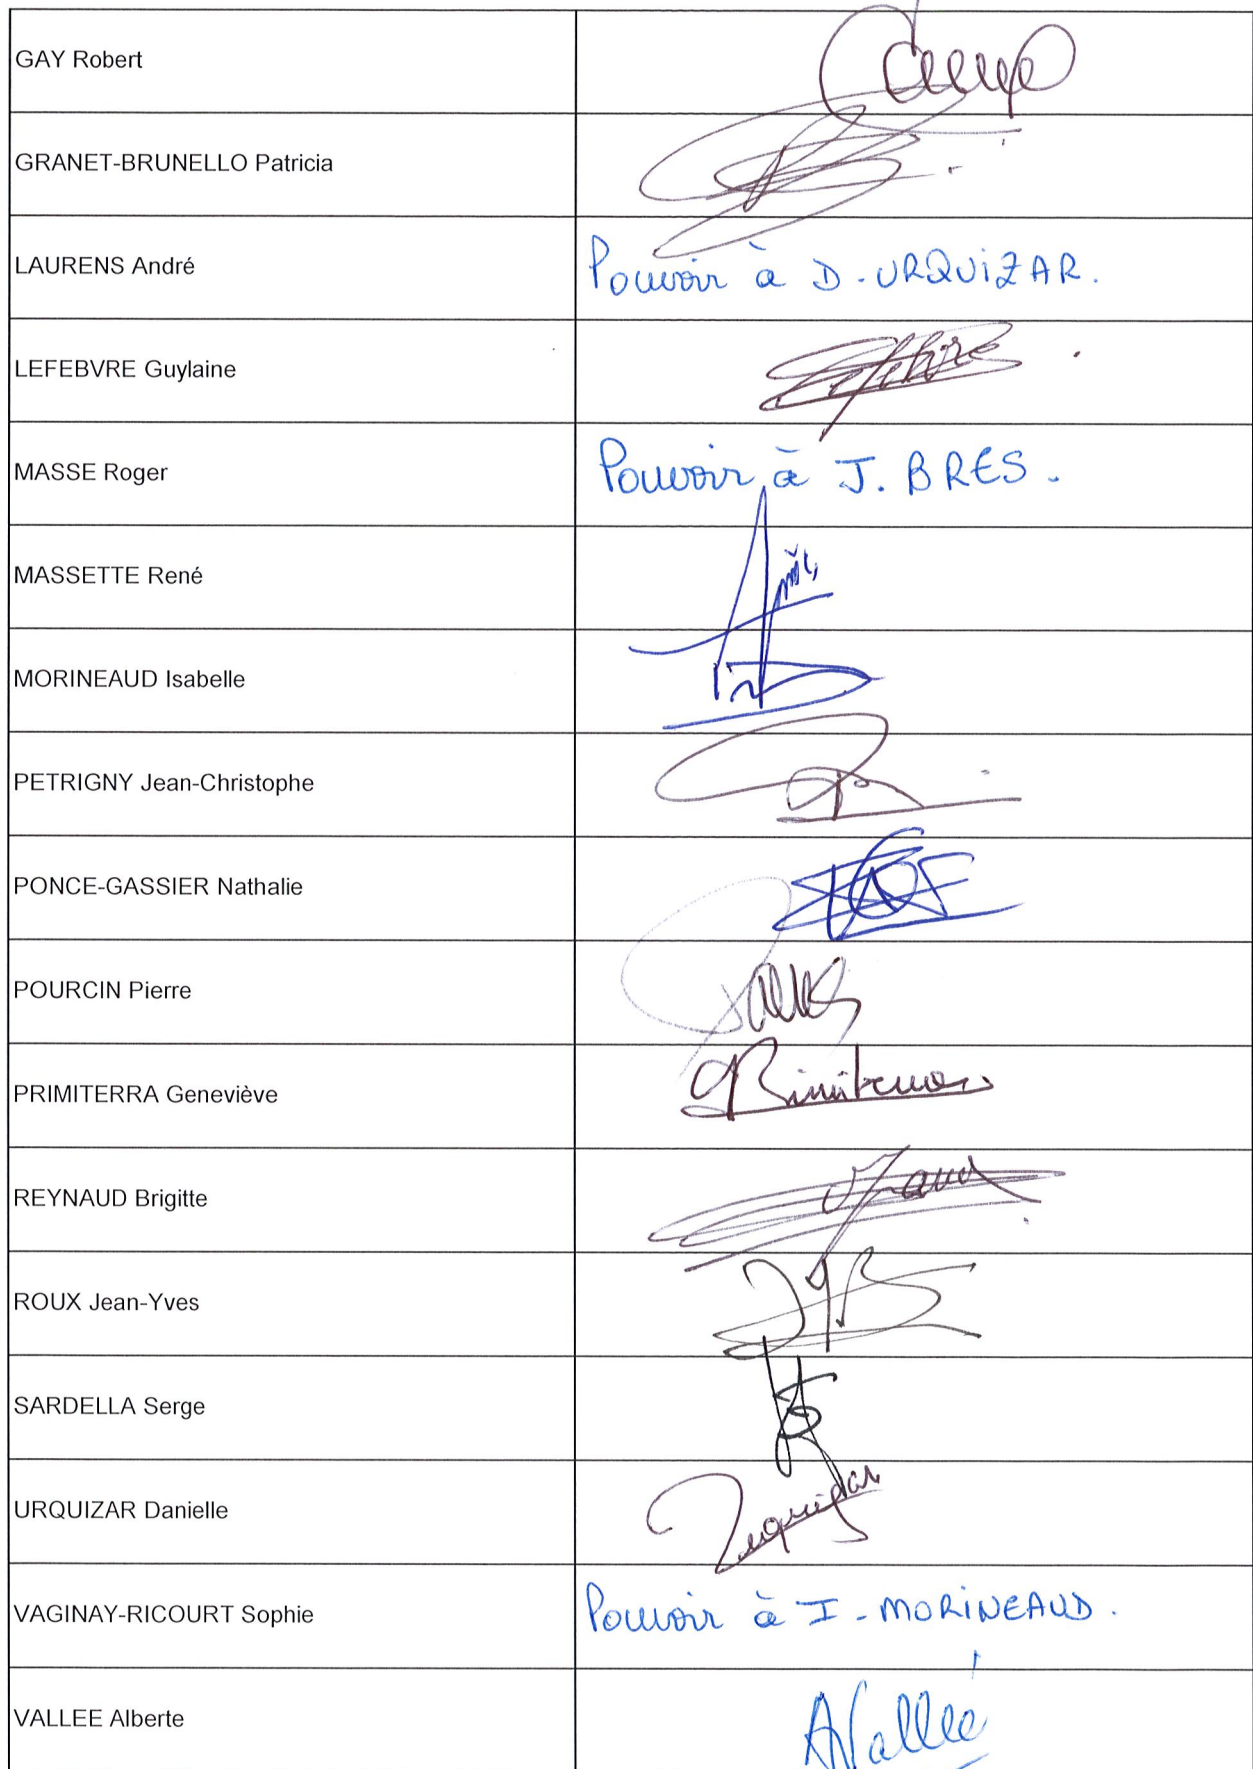 GAY Robert
GRANET-BRUNELLO Patricia
LAURENS André
Pouvoir à D. URQUIZAR.
LEFEBVRE Guylaine
MASSE Roger
Pouvoir à J. BRES.
MASSETTE René
MORINEAUD Isabelle
PETRIGNY Jean-Christophe
PONCE-GASSIER Nathalie
POURCIN Pierre
PRIMITERRA Geneviève
REYNAUD Brigitte
ROUX Jean-Yves
SARDELLA Serge
URQUIZAR Danielle
Urquizar
VAGINAY-RICOURT Sophie
Pouvoir à I. MORINEAUD.
VALLEE Alberte
AVallée